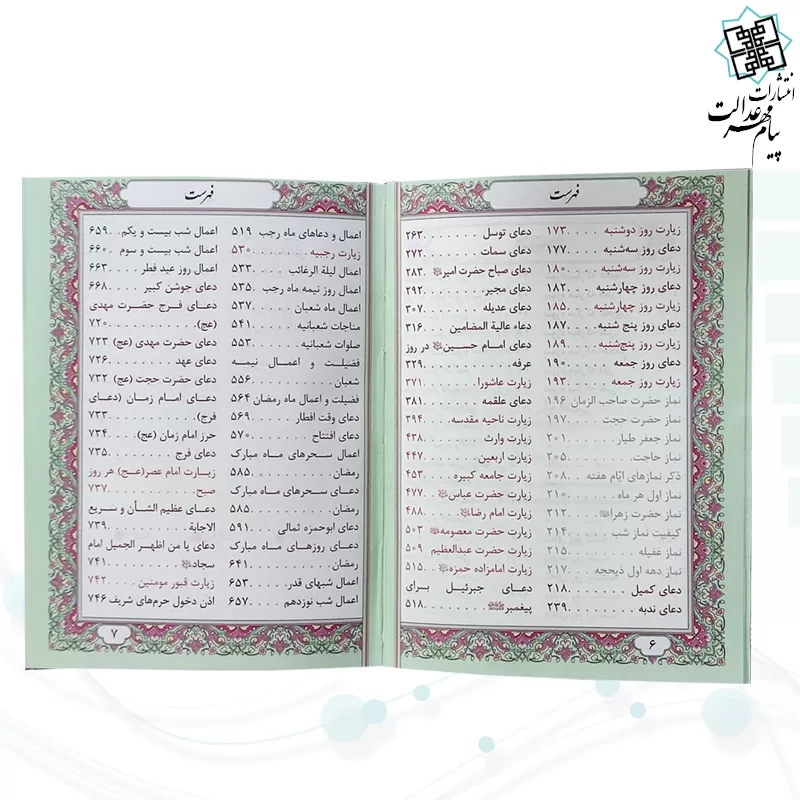 انتشارات
پیام مهر عدالت
فهرست
زیارت روز دوشنبه . . . . ۱۷۳
دعای روز سه‌شنبه . . . . ۱۷۷
زیارت روز سه‌شنبه . . . . ۱۸۰
دعای روز چهارشنبه . . . . ۱۸۲
زیارت روز چهارشنبه . . . . ۱۸۵
دعای روز پنج شنبه . . . . ۱۸۷
زیارت روز پنج‌شنبه . . . . ۱۸۹
دعای روز جمعه . . . . ۱۹۰
زیارت روز جمعه . . . . ۱۹۳
نماز حضرت صاحب الزمان ۱۹۶
نماز حضرت حجت . . . . ۱۹۷
نماز جعفر طیار . . . . ۲۰۱
نماز حاجت . . . . ۲۰۵
ذکر نمازهای ایّام هفته . . ۲۰۸
نماز اول هر ماه . . . . ۲۱۰
نماز حضرت زهرا . . . . ۲۱۲
کیفیت نماز شب . . . . ۲۱۴
نماز غفیله . . . . ۲۱۵
نماز دهه اول ذیحجه . . . . ۲۱۷
دعای کمیل . . . . ۲۱۸
دعای ندبه . . . . ۲۳۹
دعای توسل . . . . ۲۶۳
دعای سمات . . . . ۲۷۲
دعای صباح حضرت امیر . ۲۸۳
دعای مجیر . . . . ۲۹۲
دعای عدیله . . . . ۳۰۷
دعاء عالیة المضامین . . . . ۳۱۶
دعای امام حسین در روز
عرفه . . . . ۳۲۹
زیارت عاشورا . . . . ۳۷۱
دعای علقمه . . . . ۳۸۱
زیارت ناحیه مقدسه . . . . ۳۹۴
زیارت وارث . . . . ۴۳۸
زیارت اربعین . . . . ۴۴۷
زیارت جامعه کبیره . . . . ۴۵۳
زیارت حضرت عباس . . ۴۷۷
زیارت امام رضا . . . . ۴۸۸
زیارت حضرت معصومه ۵۰۳
زیارت حضرت عبدالعظیم ۵۰۹
زیارت امامزاده حمزه . . ۵۱۵
دعای جبرئیل برای
پیغمبر . . . . ۵۱۸
۶
فهرست
اعمال و دعاهای ماه رجب ۵۱۹
زیارت رجبیه . . . . ۵۳۰
اعمال لیلة الرغائب . . . . ۵۳۳
اعمال روز نیمه ماه رجب . ۵۳۵
اعمال ماه شعبان . . . . ۵۳۷
مناجات شعبانیه . . . . ۵۴۱
صلوات شعبانیه . . . . ۵۵۳
فضیلت و اعمال نیمه
شعبان . . . . ۵۵۶
فضیلت و اعمال ماه رمضان ۵۶۴
دعای وقت افطار . . . . ۵۶۹
دعای افتتاح . . . . ۵۷۰
اعمال سحرهای ماه مبارک
رمضان . . . . ۵۸۵
دعای سحرهای ماه مبارک
رمضان . . . . ۵۸۵
دعای ابوحمزه ثمالی . . . . ۵۹۱
دعای روزهای ماه مبارک
رمضان . . . . ۶۴۱
اعمال شبهای قدر . . . . ۶۵۳
اعمال شب نوزدهم . . . . ۶۵۷
اعمال شب بیست و یکم . . ۶۵۹
اعمال شب بیست و سوم . ۶۶۰
اعمال روز عید فطر . . . . ۶۶۳
دعای جوشن کبیر . . . . ۶۶۸
دعای فرج حضرت مهدی
(عج) . . . . ۷۲۰
دعای حضرت مهدی (عج) ۷۲۳
دعای عهد . . . . ۷۲۶
دعای حضرت حجت (عج) ۷۳۲
دعای امام زمان (دعای
فرج) . . . . ۷۳۳
حرز امام زمان (عج) . . . . ۷۳۴
دعای فرج . . . . ۷۳۵
زیارت امام عصر(عج) هر روز
صبح . . . . ۷۳۷
دعای عظیم الشأن و سریع
الاجابة . . . . ۷۳۹
دعای یا من اظهر الجمیل امام
سجاد . . . . ۷۴۱
زیارت قبور مومنین . . . . ۷۴۲
اذن دخول حرم‌های شریف ۷۴۶
۷